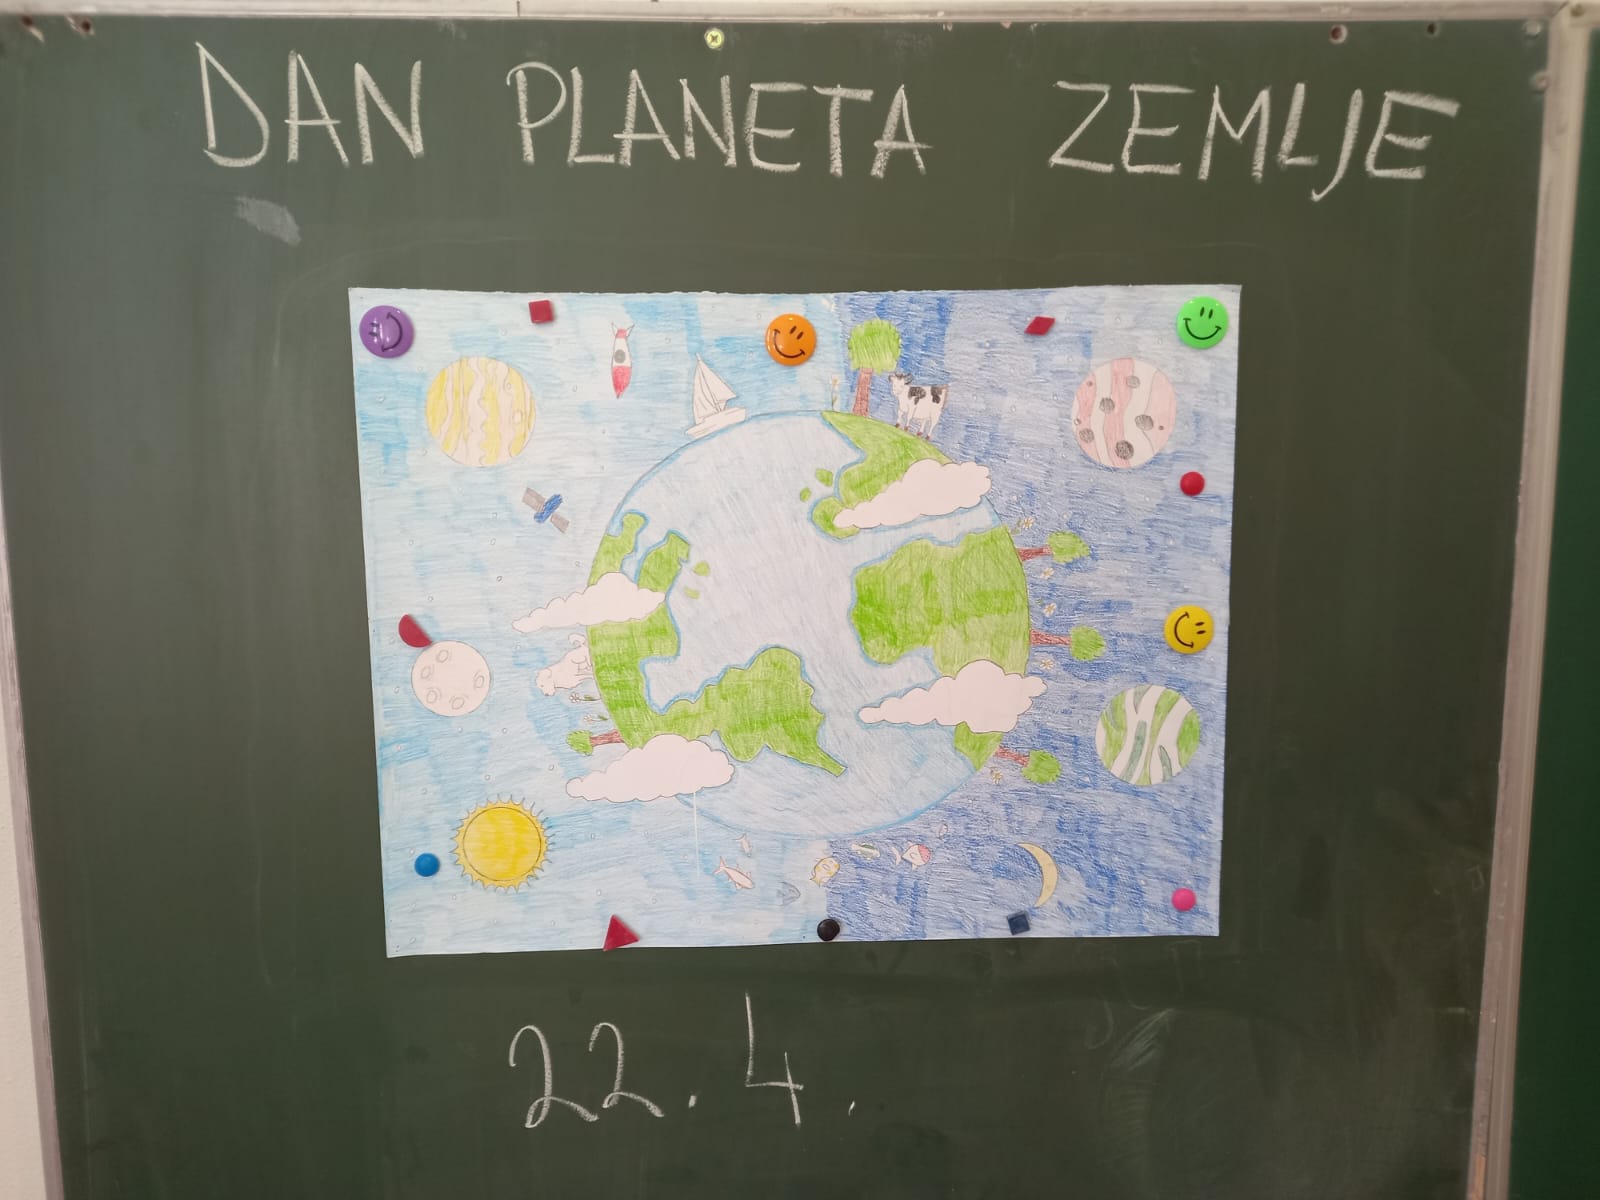 DAN PLANETA ZEMLJE
22.4.